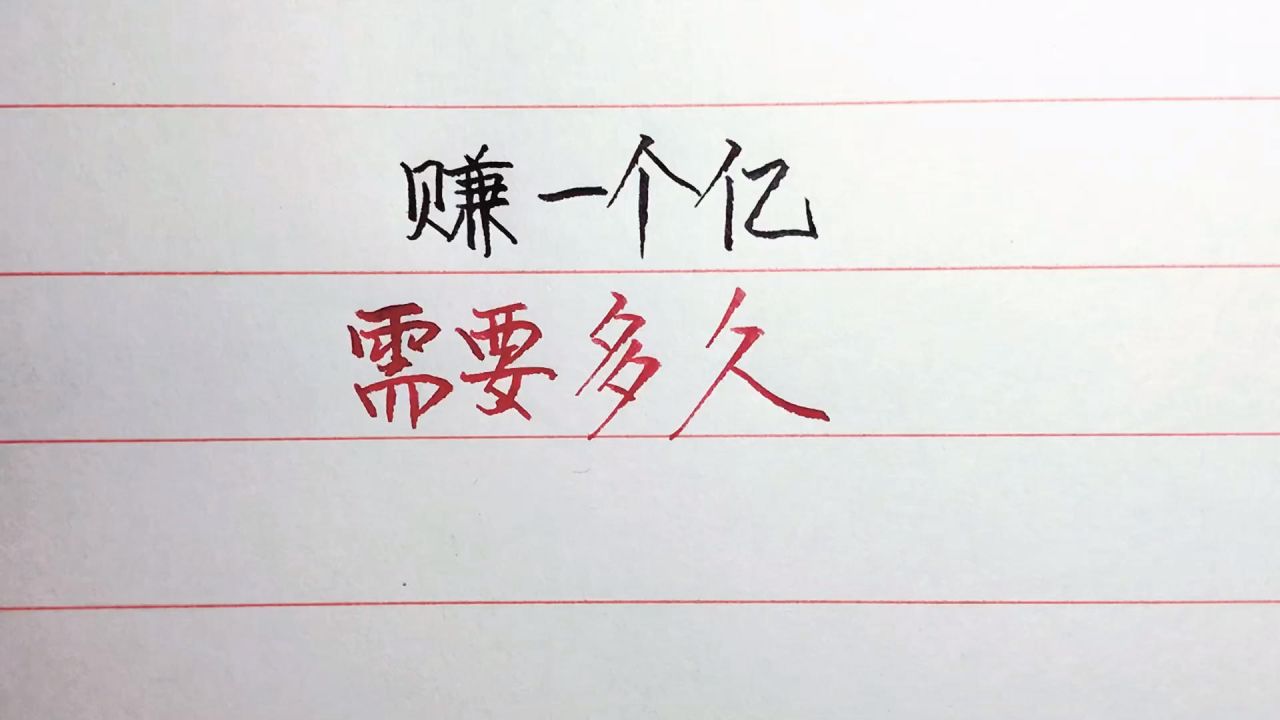 赚一个亿
需要多久